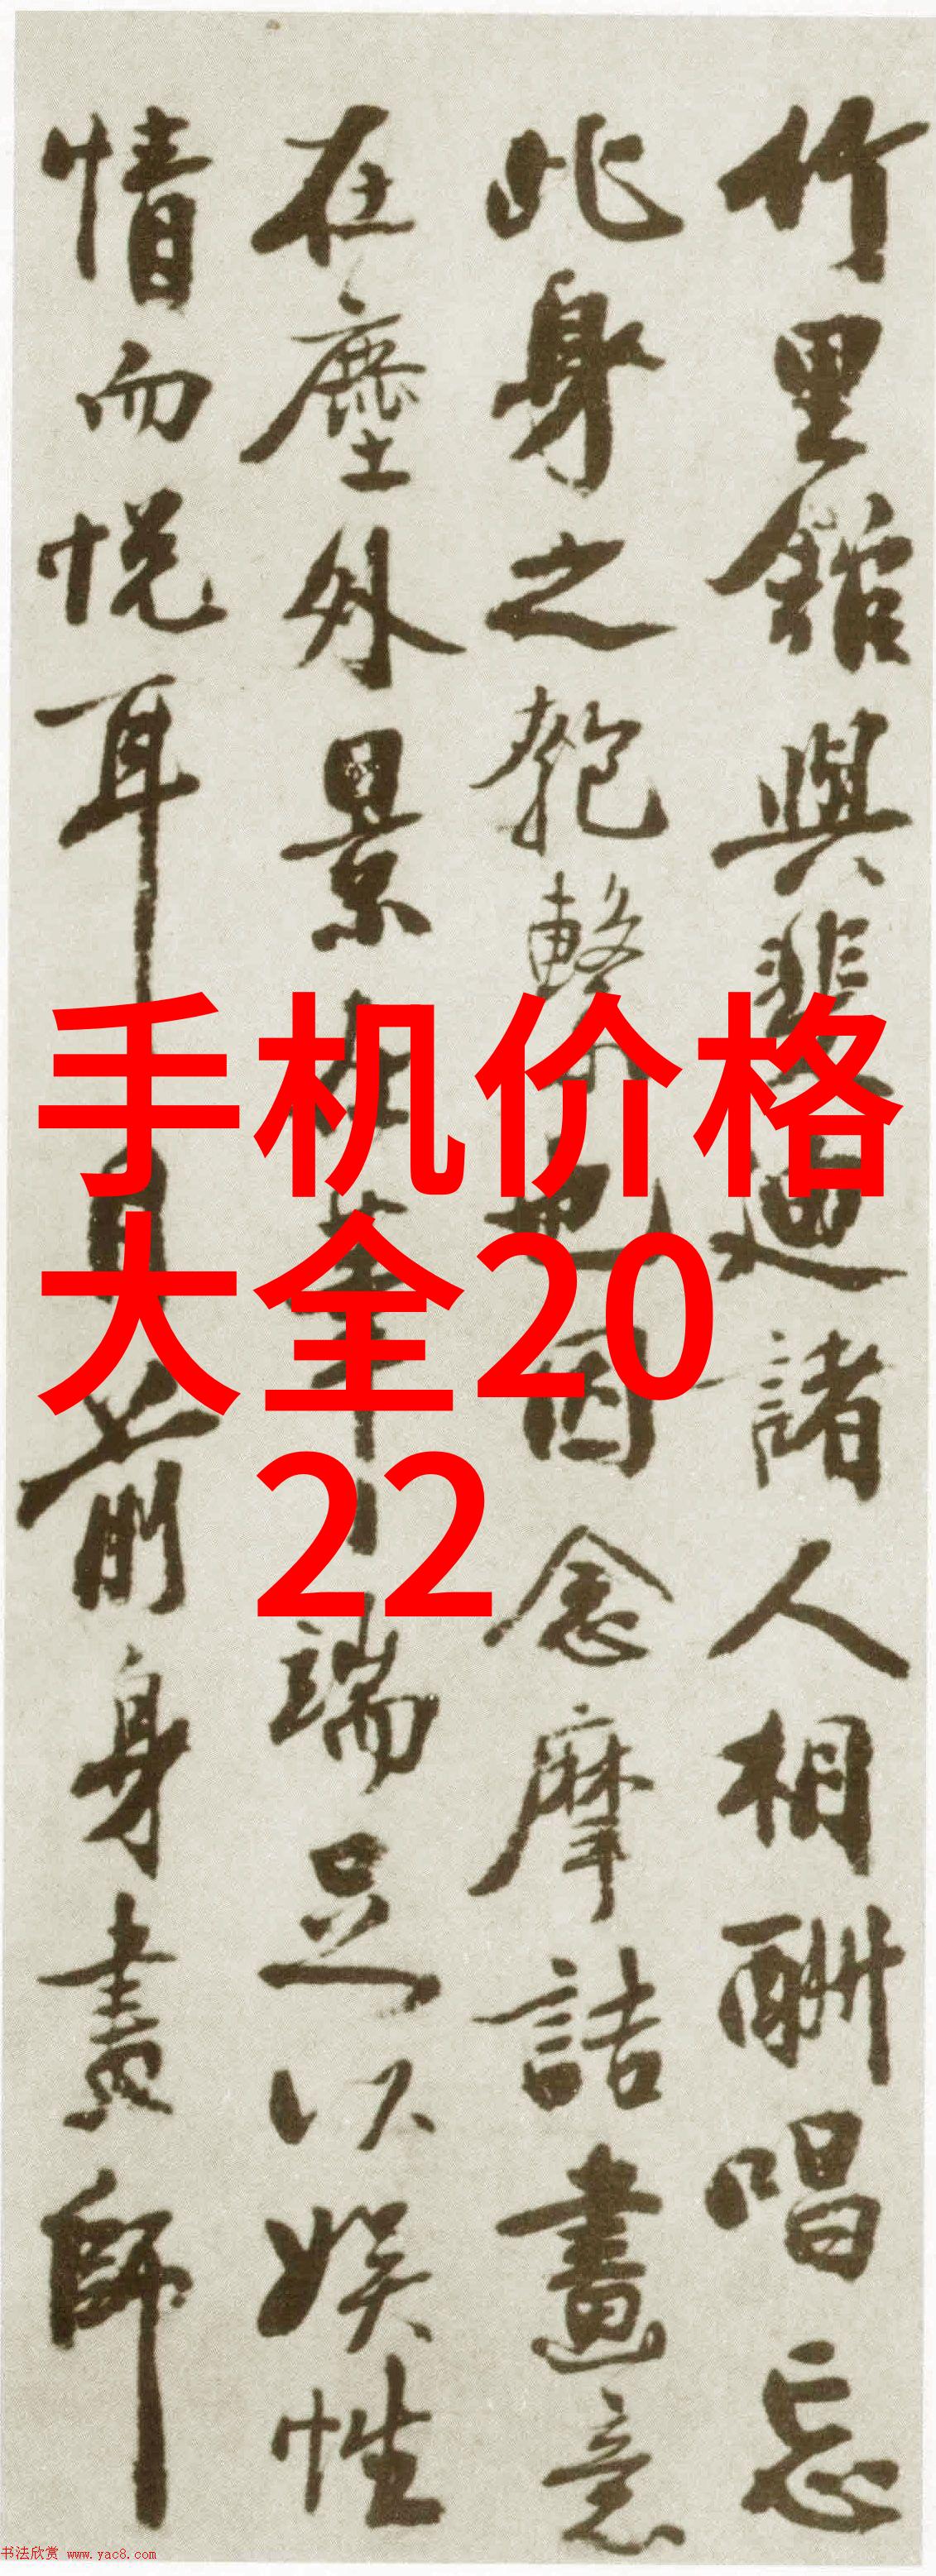 竹里館與裴迪諸人相酬唱忘
此身之匏繫也因念摩詰畫意
在塵外景在筆端足以娱性
情而悦耳目前身畫師
手机价格
大全20
22
书法欣赏 www.yac8.com